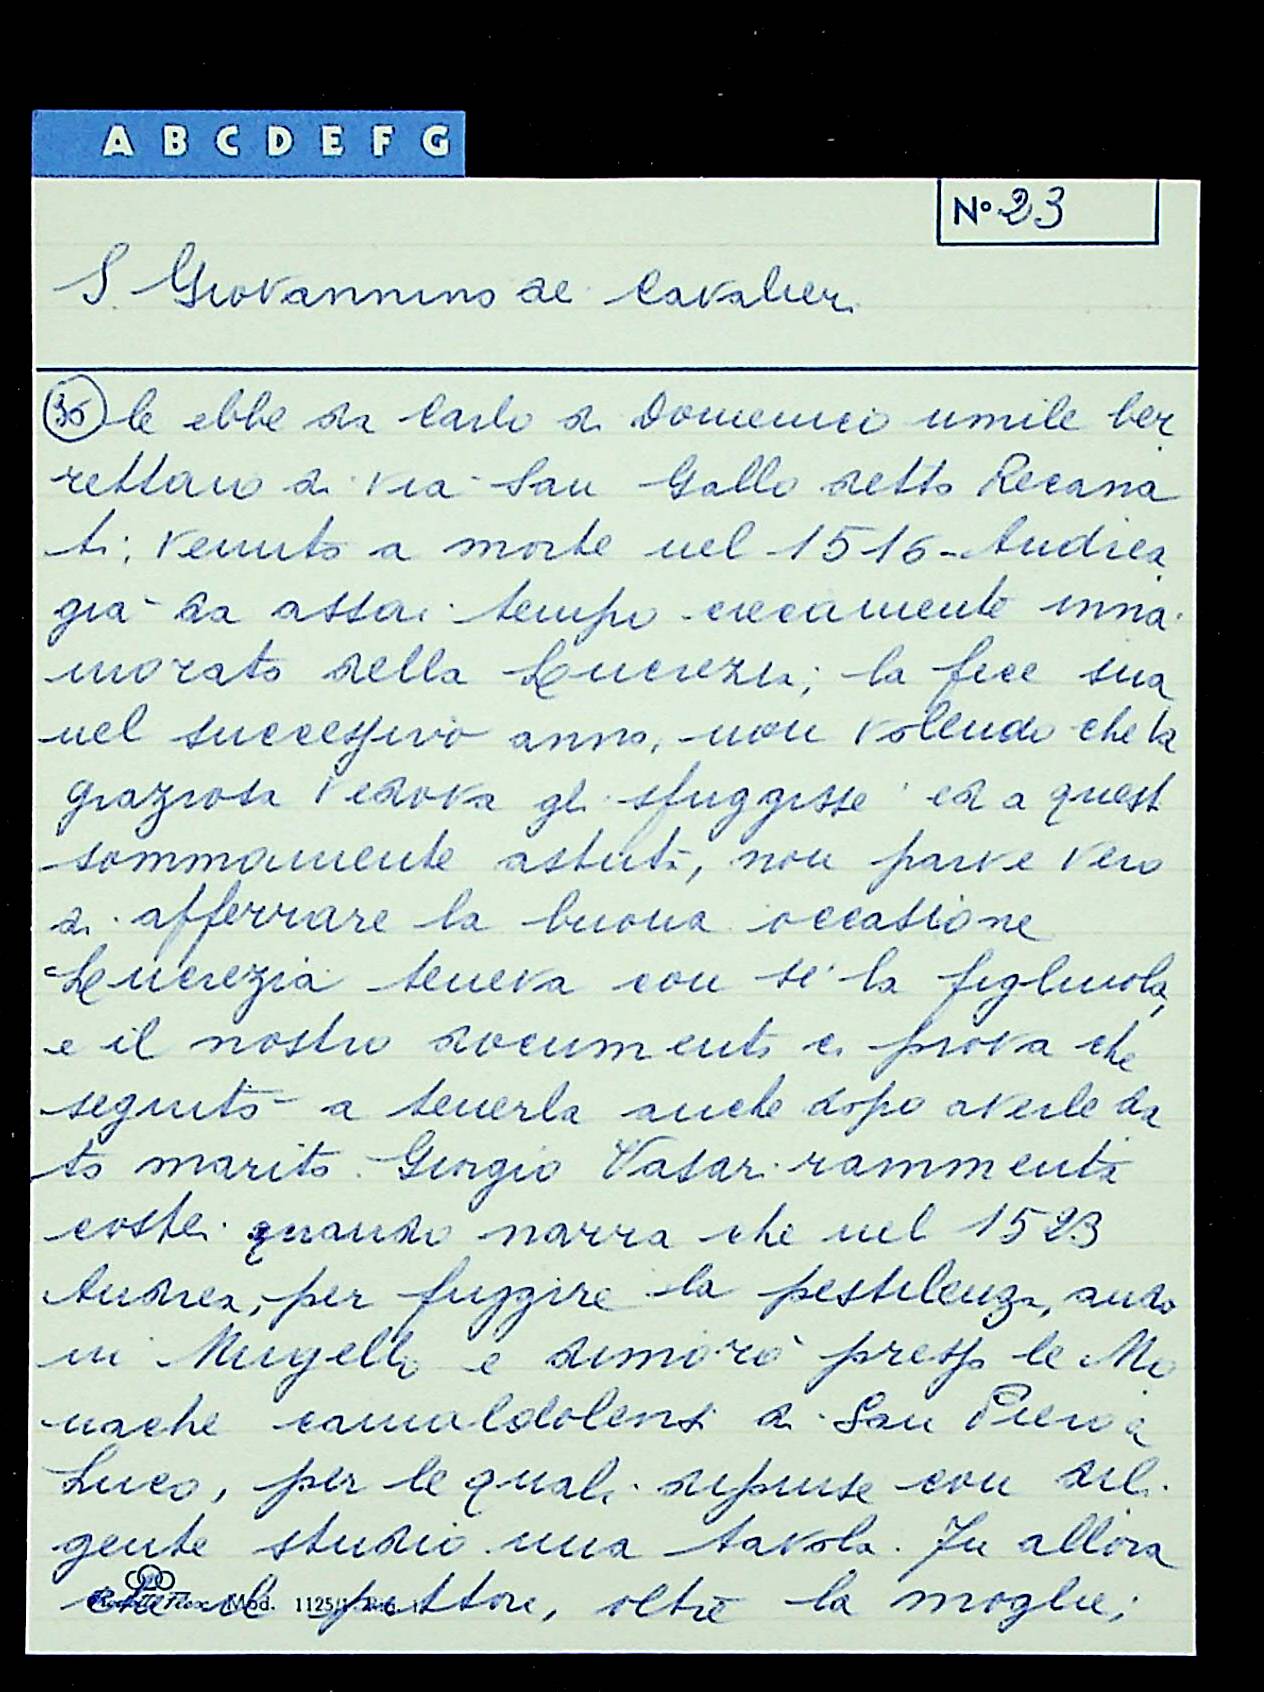 A B C D E F G
Nº 23
S. Giovannino de Cavalieri
36 le ebbe da Carlo di Domenico umile ber
rettaio di via San Gallo detto Recana
ti; venuto a morte nel 1516 - Andrea
già da assai tempo ciecamente inna
morato della Lucrezia; la fece sua
nel successivo anno, non volendo che la
graziosa vedova gli sfuggisse ed a quest
sommamente astuta, non parve vero
di afferrare la buona occasione
Lucrezia teneva con sé la figliuola,
e il nostro documento ci prova che
seguitò a tenerla anche dopo averle da
to marito. Giorgio Vasari rammenta
costei quando narra che nel 1523
Andrea, per fuggire la pestilenza, andò
in Mugello e dimorò presso le Mo
nache camaldolensi di San Piero a
Luco, per le quali dipinse con dili
gente studio una tavola. Fu allora
che il pittore, oltre la moglie;
Mod. 1125/1